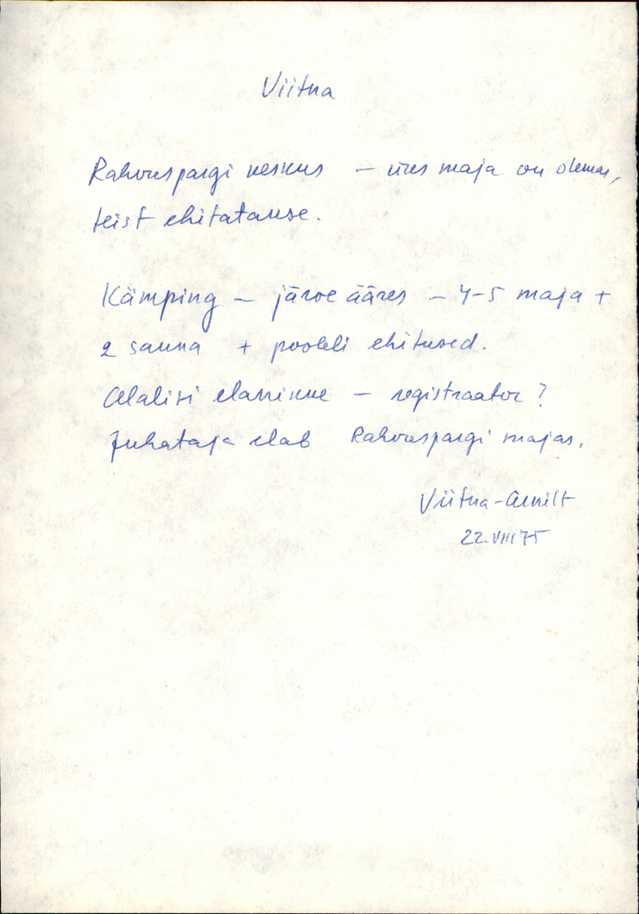 Viitna
Rahvuspargi keskus – üks maja on olemas,
teist ehitatakse.
Kämping – järve ääres – 4-5 maja +
2 sauna + pooleli ehitused.
Alalisi elanikke – registraator?
Juhataja elab Rahvuspargi majas.
22.VIII 75